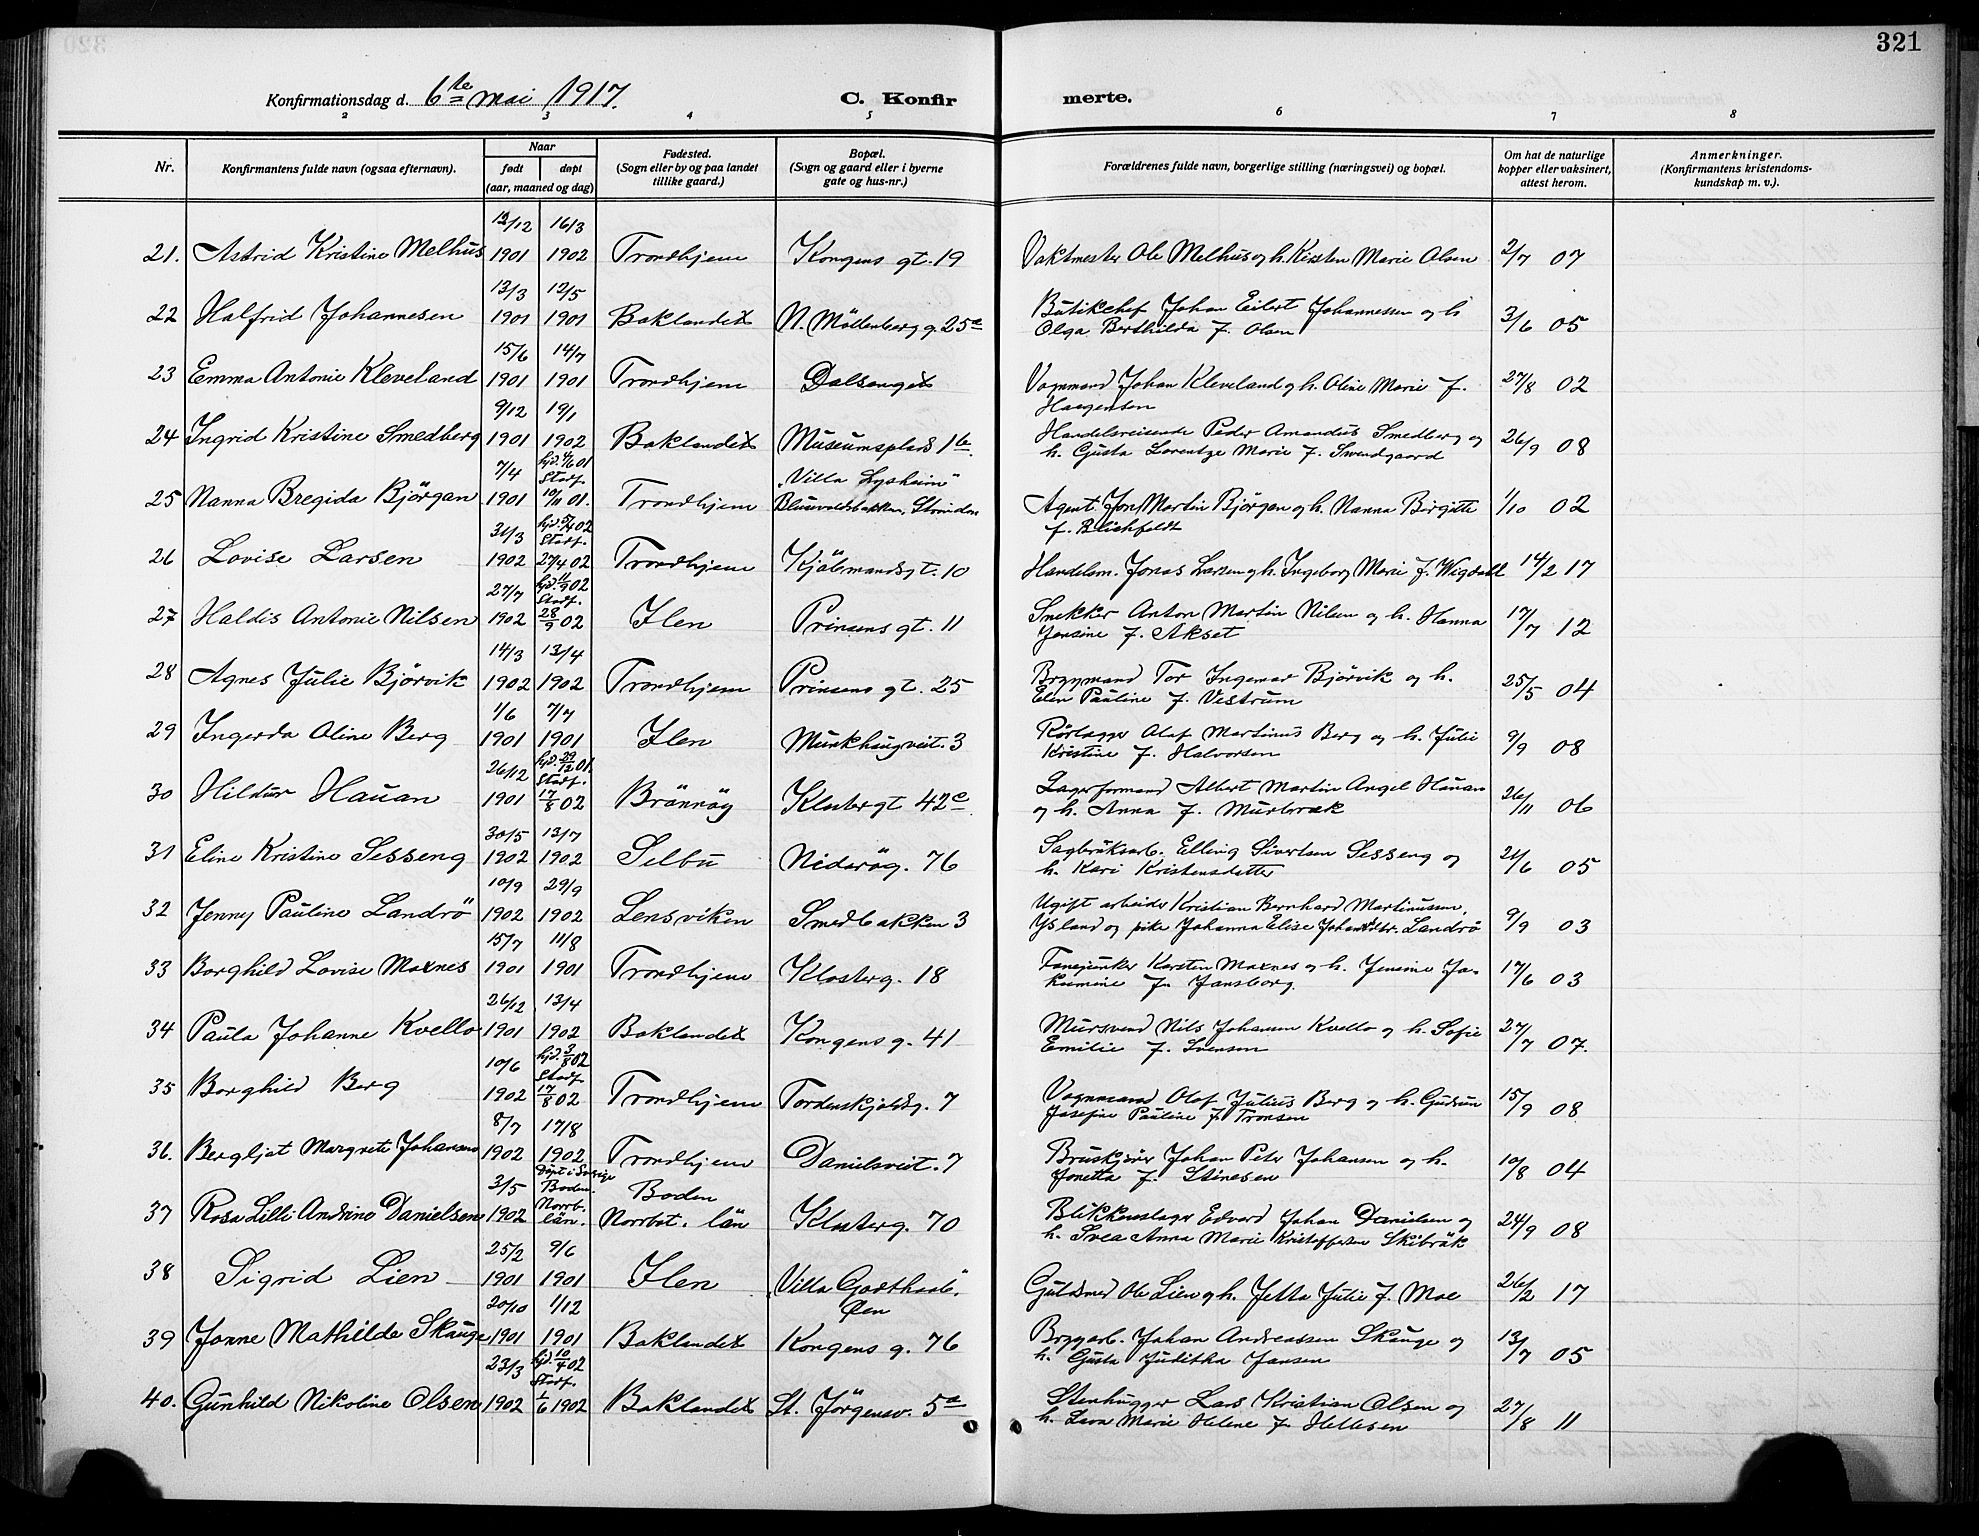 321
Konfirmationsdag d. 6te mai 1917.
C. Konfirmerte.
2 3 4 5 6 7 8
Nr. Konfirmantens fulde navn (ogsaa efternavn). Naar født døpt (aar, maaned og dag) Fødested. (Sogn eller by og paa landet tillike gaard.) Bopæl. (Sogn og gaard eller i byerne gate og hus-nr.) Forældrenes fulde navn, borgerlige stilling (næringsvei) og bopæl. Om hat de naturlige kopper eller vaksinert, attest herom. Anmerkninger. (Konfirmantens kristendomskundskap m. v.).
21. Astrid Kristine Melhus 13/12 1901 16/3 1902 Trondhjem Kongens gt. 19 Vaktmester Ole Melhus og h. Kirsten Marie Olsen 2/7 07
22 Halfrid Johannesen 13/3 1901 12/5 1901 Baklandet N. Möllenberg g. 25a Butikchef Johan Eilert Johannessen og h.
Olga Berthilda f. Olsen 3/6 05
23 Emma Antonie Kleveland 15/6 1901 14/7 1901 Trondhjem Dalsenget Vognmand Johan Kleveland og h. Oline Marie f.
Haagensen 27/8 02
24 Ingrid Kristine Smedberg 9/12 1901 19/1 1902 Baklandet Museumsplads 1b Handelsreisende Peder Amandus Smedberg og
h. Gusta Lorentze Marie f. Svendgaard 26/9 08
25 Nanna Bregida Björgan 7/4 1901 hjd. 4/6 01 Stadf. 10/11 01. Trondhjem "Villa Lysheim"
Strinden Agent Jon Martin Björgan og h. Nanna Birgitte
f. Blichfeldt 1/10 02
26 Lovise Larsen 31/3 1902 hjd. 5/4 02 Stadf. 27/4 02 Trondhjem Kjöbmandsgt. 10 Handelsm. Jonas Larsen og h. Ingeborg Marie f. Wigdahl 14/2 17
27 Haldis Antonie Nilsen 27/7 1902 hjd. 11/9 02 Stadf. 28/9 02 Ilen Prinsens gt. 11 Snekker Anton Martin Nilsen og h. Hanna
Jensine f. Akset 17/7 12
28 Agnes Julie Bjørvik 14/3 1902 13/4 1902 Trondhjem Prinsens gt. 25 Bryggmand Tor Ingemar Bjørvik og h.
Elen Pauline f. Vestrum 25/5 04
29 Ingerda Oline Berg 1/6 1901 7/7 1901 Ilen Munkhaugveit. 3 Rörlagger Olaf Martinus Berg og h. Julie
Kristine f. Halvorsen 9/9 08
30 Hildur Hauan 26/12 1901 hjd. 29/12 01. Stadf. 17/8 02 Brönnöy Klostergt 42c Lagerformand Albert Martin Angel Hauan
og h. Anna f. Murbræk 26/11 06
31 Eline Kristine Sesseng 30/5 1902 13/7 1902 Selbu Nidarög. 76 Sagbruksarb. Elling Sivertsen Sesseng og
h. Kari Kristensdatter 21/6 05
32 Jenny Pauline Landrö 10/9 1902 29/9 1902 Lensviken Smedbakken 3 Ugift arbeider Kristian Bernhard Martinussen,
Ysland og pike Johanna Elise Johansdtr. Landrö 9/9 03
33 Borghild Lovise Moxnes 15/7 1901 11/8 1901 Trondhjem Klosterg. 18 Fanejunker Karsten Moxnes og h. Jensine Jakumine
f. Jansborg. 17/6 03
34 Paula Johanne Kvello 26/12 1901 13/4 1902 Baklandet Kongens g. 41 Mursvend Nils Johansen Kvello og h. Sofie
Emilie f. Svensen 27/7 07.
35 Borghild Berg 10/6 1902 hjd. 3/8 02 Stadf. 17/8 02 Trondhjem Tordenskjoldsg. 7 Vognmand Olaf Julius Berg og h. Gudrun
Josefine Pauline f. Tronsen 15/9 08
36. Bergljot Margrete Johansen 8/7 1902 17/8 1902 Trondhjem Danielsveit. 7 Bruskjører Johan Peter Johansen og h.
Jonetta f. Stinesen 10/8 04
37 Rosa Lilli Andrine Danielsen 3/5 1902 Döpt i Sverige Boden. Norrb. län. Boden Norrbt. län Klosterg. 70 Blikkenslager Edvard Johan Danielsen og
h. Svea Anna Marie Kristoffersen Skibråk 24/9 08
38 Sigrid Lien 25/2 1901 9/6 1901 Ilen "Villa Godthaab"
Øen Guldsmed Ole Lien og h. Jetta Julie f. Moe 26/2 17
39 Jonne Mathilde Skauge 20/10 1901 1/12 1901 Baklandet Kongens g. 76 Bryggarb. Johan Andreassen Skauge og
h. Gusta Juditha Jansen 13/7 05
40. Gunhild Nikoline Olsen 23/3 1902 hjd. 10/4 02 Stadf. 1/6 1902 Baklandet St. Jörgensv. 5a Stenhugger Lars Kristian Olsen og
h. Lava Marie Helene f. Hellesen 27/8 11